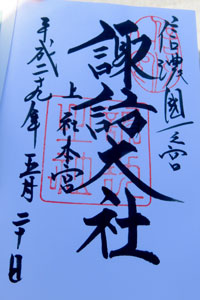 信濃國一之宮
諏訪大社
上社本宮
平成二九年五月二十日